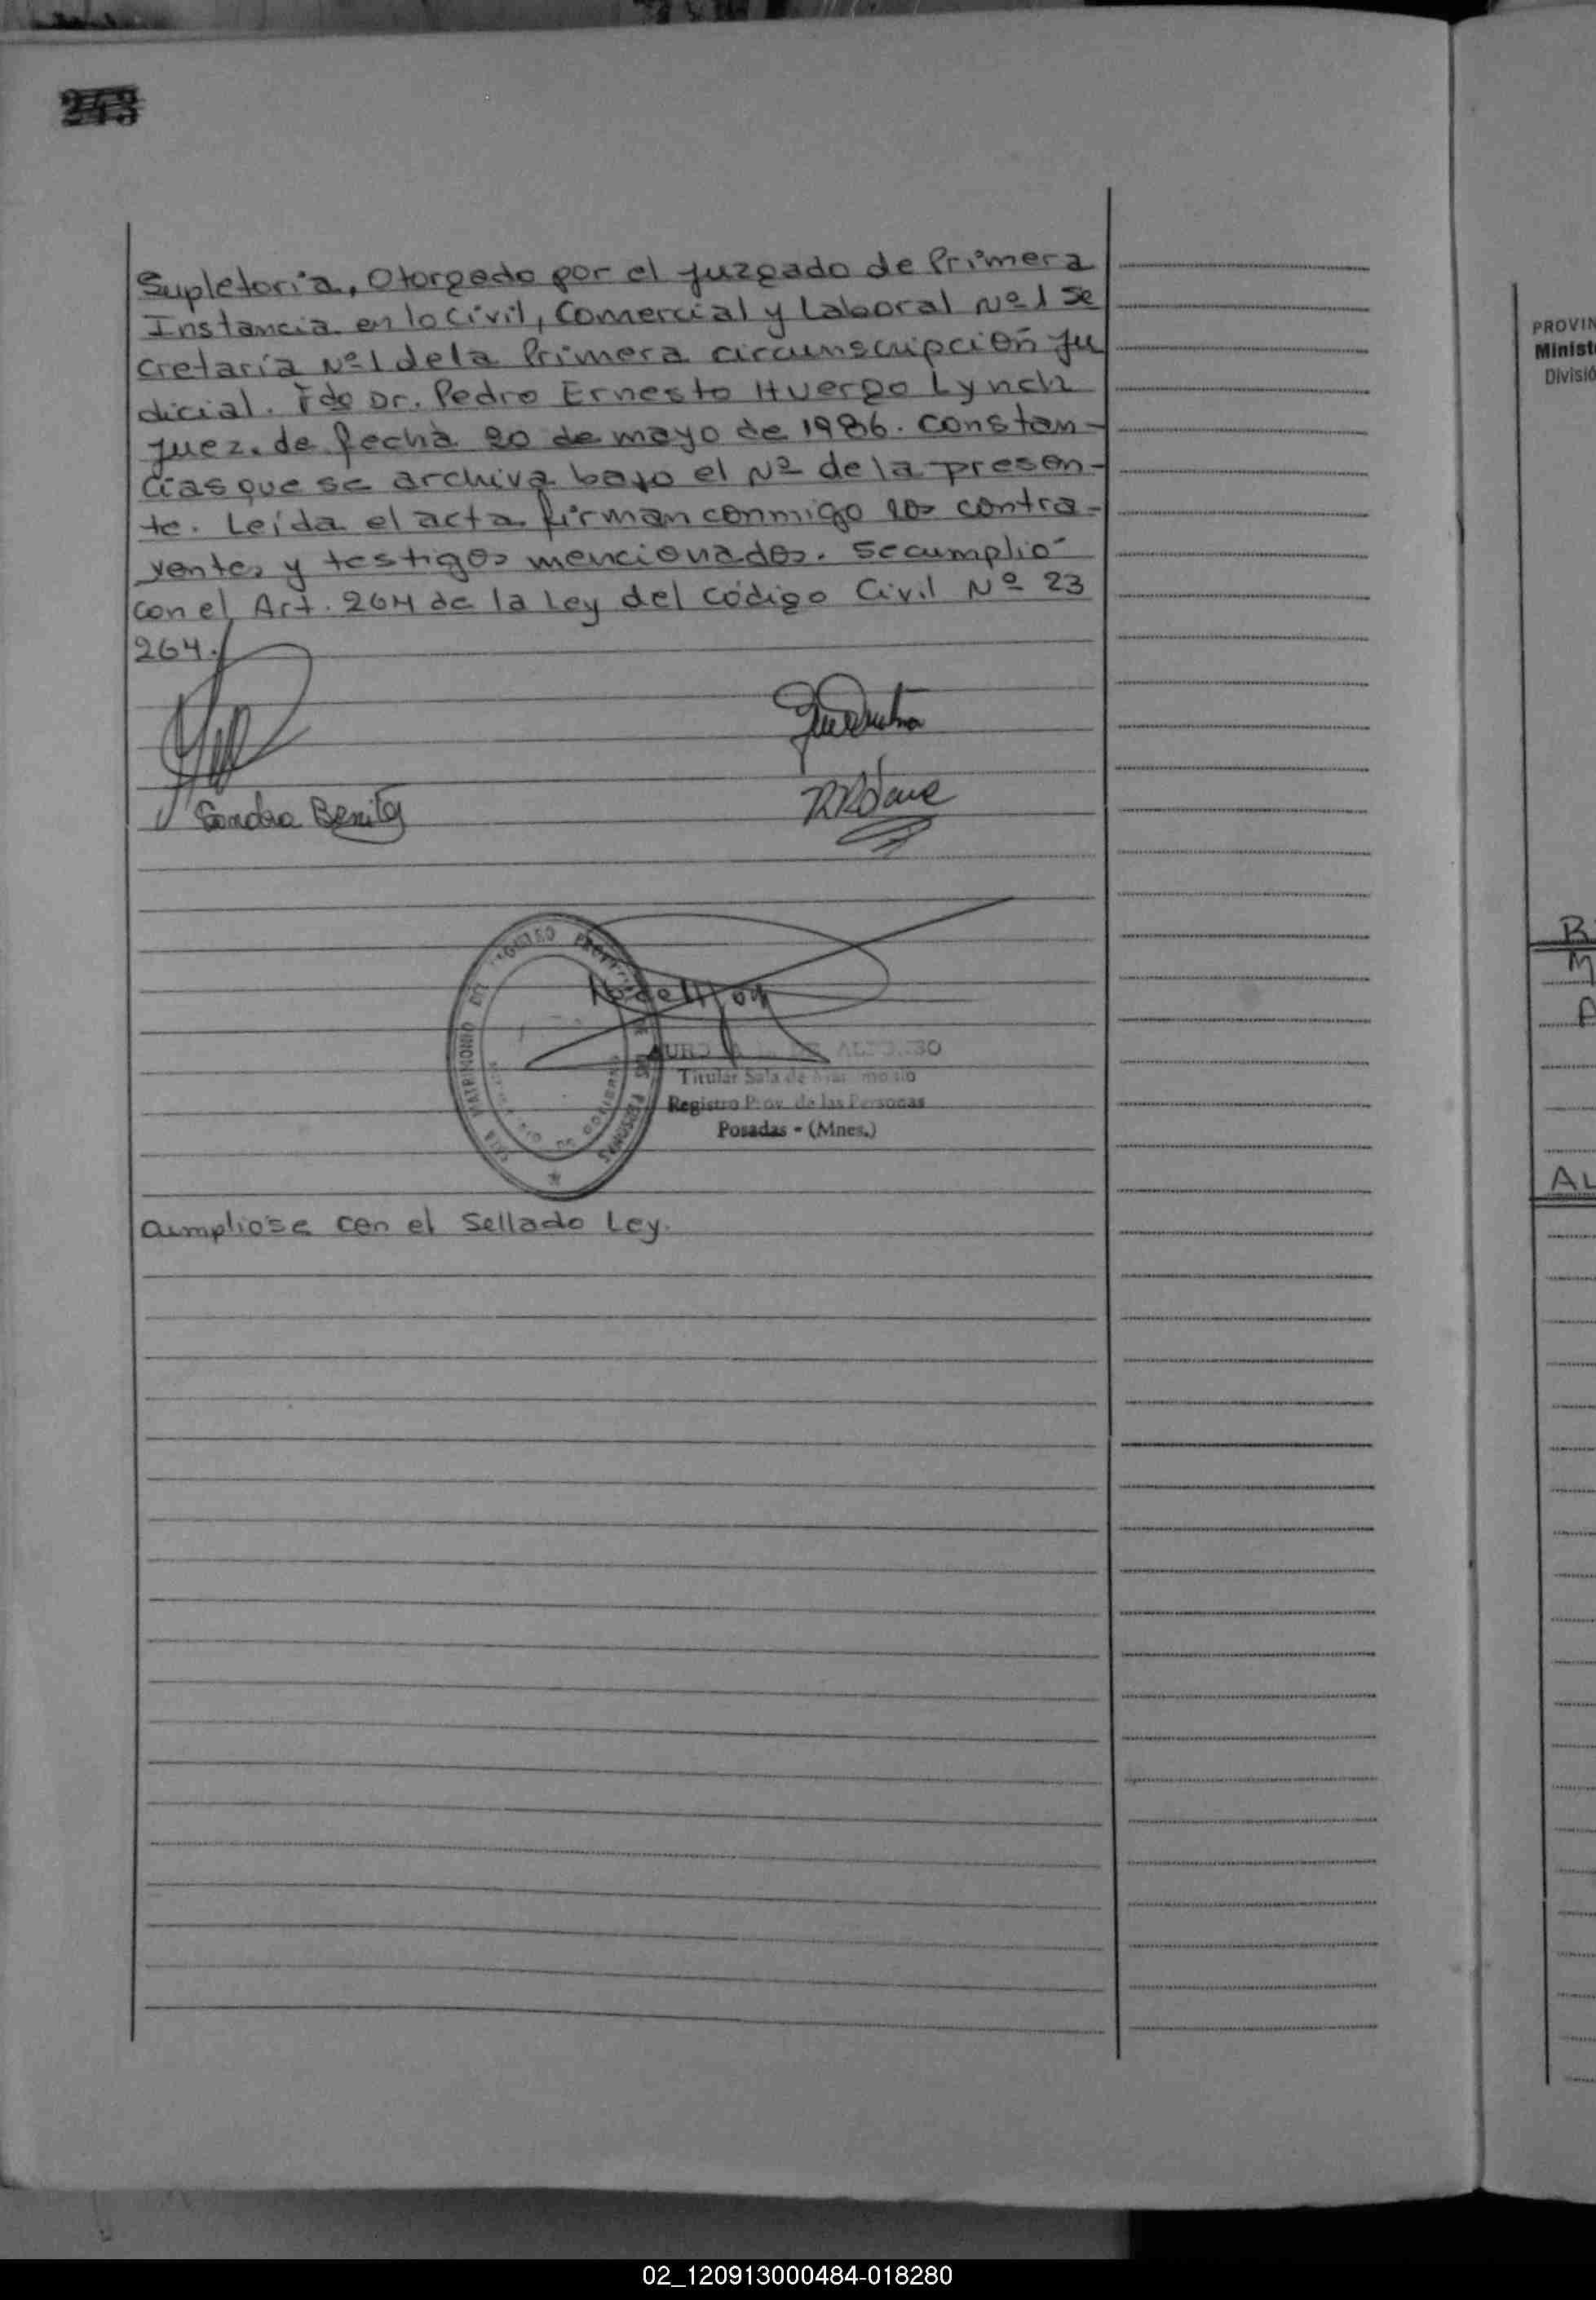 243
Supletoria, Otorgado por el Juzgado de Primera
Instancia en lo Civil, Comercial y Laboral Nº 1 Se
cretaría Nº 1 de la Primera circunscripción Ju
dicial. Fdo Dr. Pedro Ernesto Huergo Lynch
Juez. de fecha 20 de mayo de 1986. Constan-
cias que se archiva bajo el Nº de la presen-
te. Leída el acta firman conmigo los contra-
yentes y testigos mencionados. Se cumplio
con el Art. 264 de la Ley del código Civil Nº 23
264.
Sandra Benitez
SALA MATRIMONIO DEL REGISTRO PROV. DE LAS PERSONAS
Titular Sala de Matrimonio
Registro Prov. de las Personas
Posadas - (Mnes.)
Cumpliose con el Sellado Ley.
PROVIN
Minist
Divisió
R
M
A
AL
02_120913000484-018280